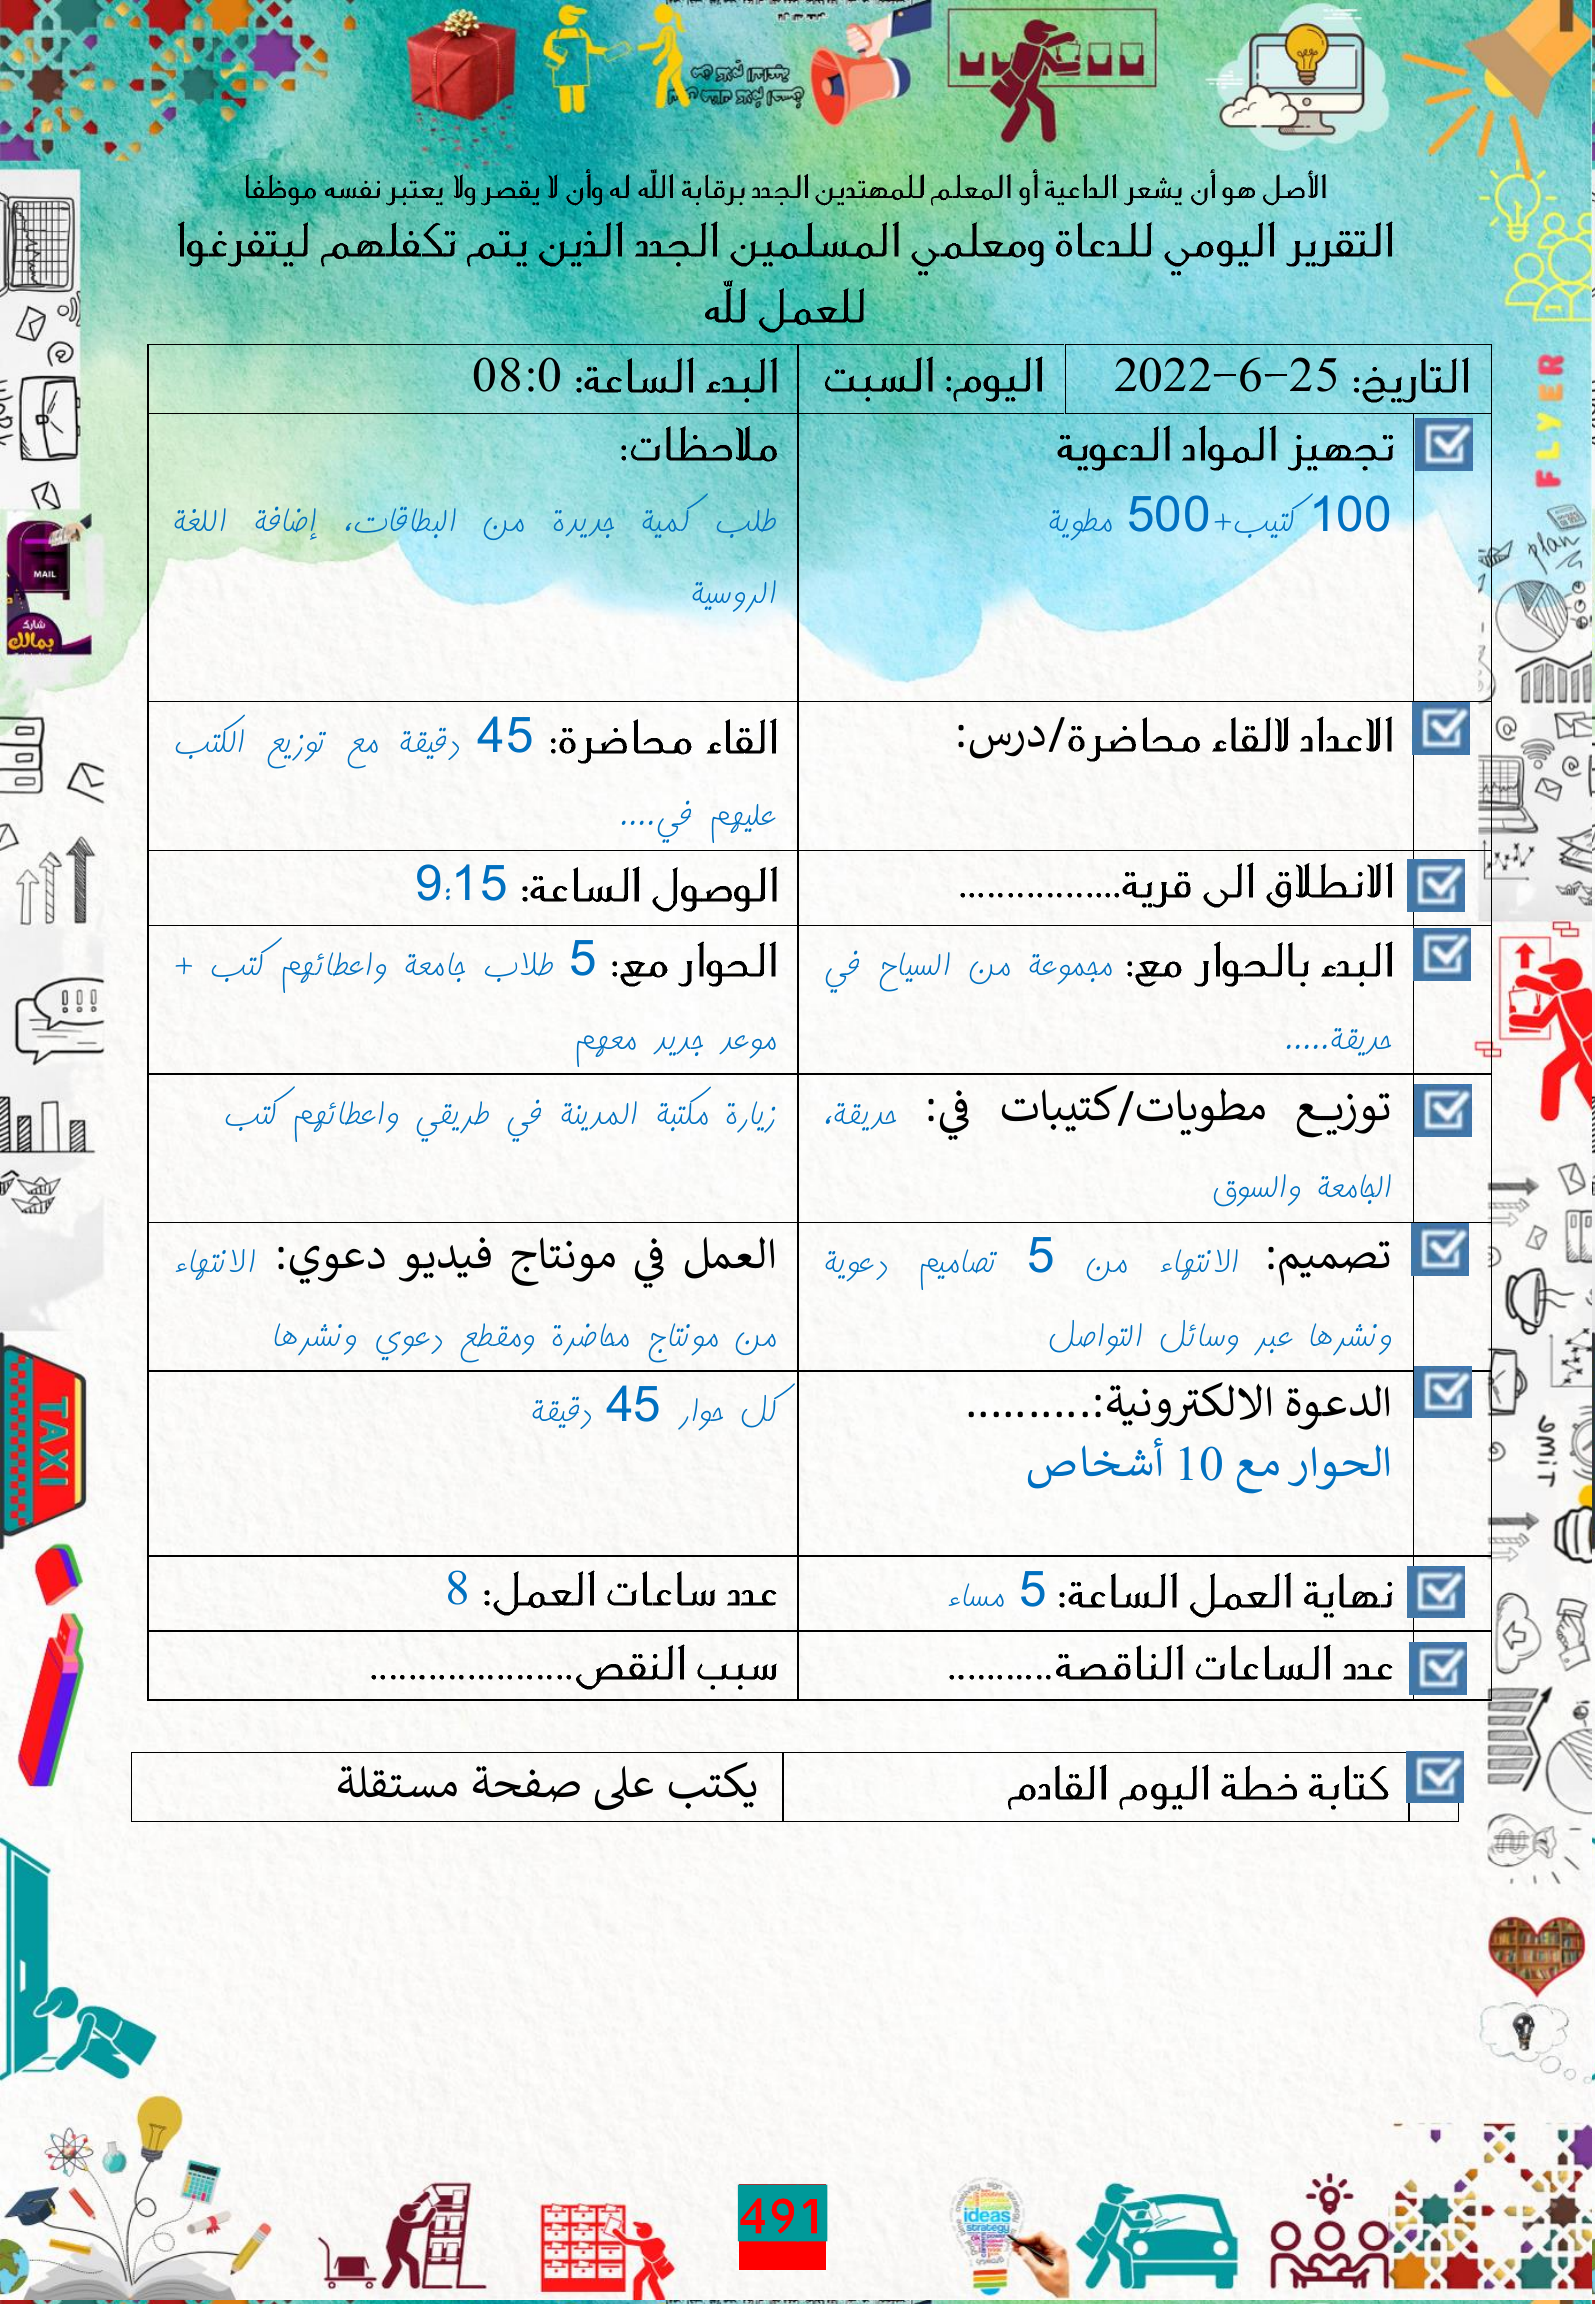 الأصل هو أن يشعر الداعية أو المعلم للمهتدين الجدد برقابة الله له وأن لا يقصر ولا يعتبر نفسه موظفا
التقرير اليومي للدعاة ومعلمي المسلمين الجدد الذين يتم تكفلهم ليتفرغوا
للعمل لله
التاريخ: 25-6-2022 اليوم: السبت البدء الساعة: 08:0
تجهيز المواد الدعوية
100 كتيب+500 مطوية
ملاحظات:
طلب كمية جديدة من البطاقات، إضافة اللغة
الروسية
الاعداد لالقاء محاضرة/درس:
القاء محاضرة: 45 دقيقة مع توزيع الكتب
عليهم في....
الانطلاق الى قرية.................
الوصول الساعة: 9:15
البدء بالحوار مع: مجموعة من السياح في
حديقة.....
الحوار مع: 5 طلاب جامعة واعطائهم كتب +
موعد جديد معهم
توزيع مطويات/كتيبات في: حديقة،
الجامعة والسوق
زيارة مكتبة المدينة في طريقي واعطائهم كتب
تصميم: الانتهاء من 5 تصاميم دعوية
ونشرها عبر وسائل التواصل
العمل في مونتاج فيديو دعوي: الانتهاء
من مونتاج محاضرة ومقطع دعوي ونشرها
الدعوة الالكترونية:..........
الحوار مع 10 أشخاص
كل حوار 45 دقيقة
نهاية العمل الساعة: 5 مساء
عدد ساعات العمل: 8
عدد الساعات الناقصة...........
سبب النقص.....................
كتابة خطة اليوم القادم
يكتب على صفحة مستقلة
MAIL
شارك
بمالك
FLYER
plan
TAXI
TIME
ideas
strategy
491